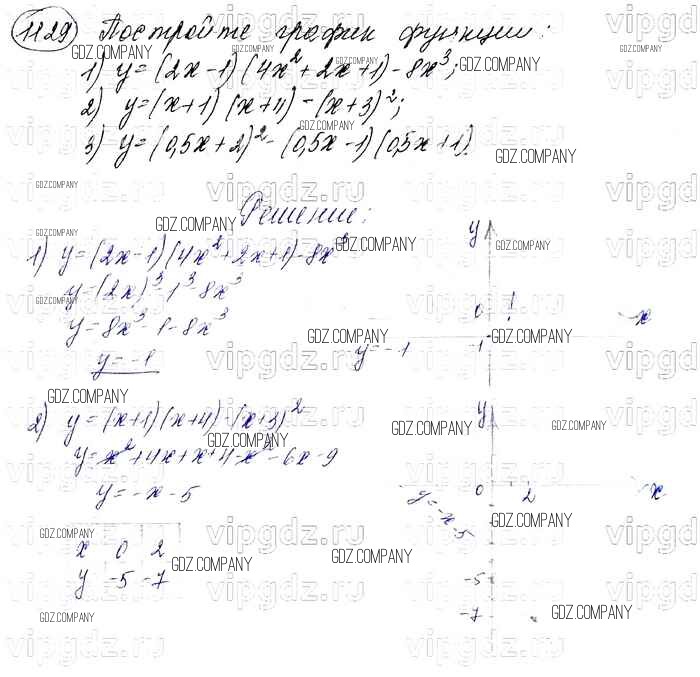 1129 Постройте график функции:
1) y=(2x-1)(4x²+2x+1)-8x³;
2) y=(x+1)(x+4)-(x+3)²;
3) y=(0,5x+2)²-(0,5x-1)(0,5x+1).
Решение:
1) y=(2x-1)(4x²+2x+1)-8x³
y=(2x)³-1³-8x³
y=8x³-1-8x³
y=-1
y
0 1
x
y=-1 -1
2) y=(x+1)(x+4)-(x+3)²
y=x²+4x+x+4-x²-6x-9
y=-x-5
x 0 2
y -5 -7
y
0 2 x
y=-x-5
-5
-7
GDZ.COMPANY
vipgdz.ru